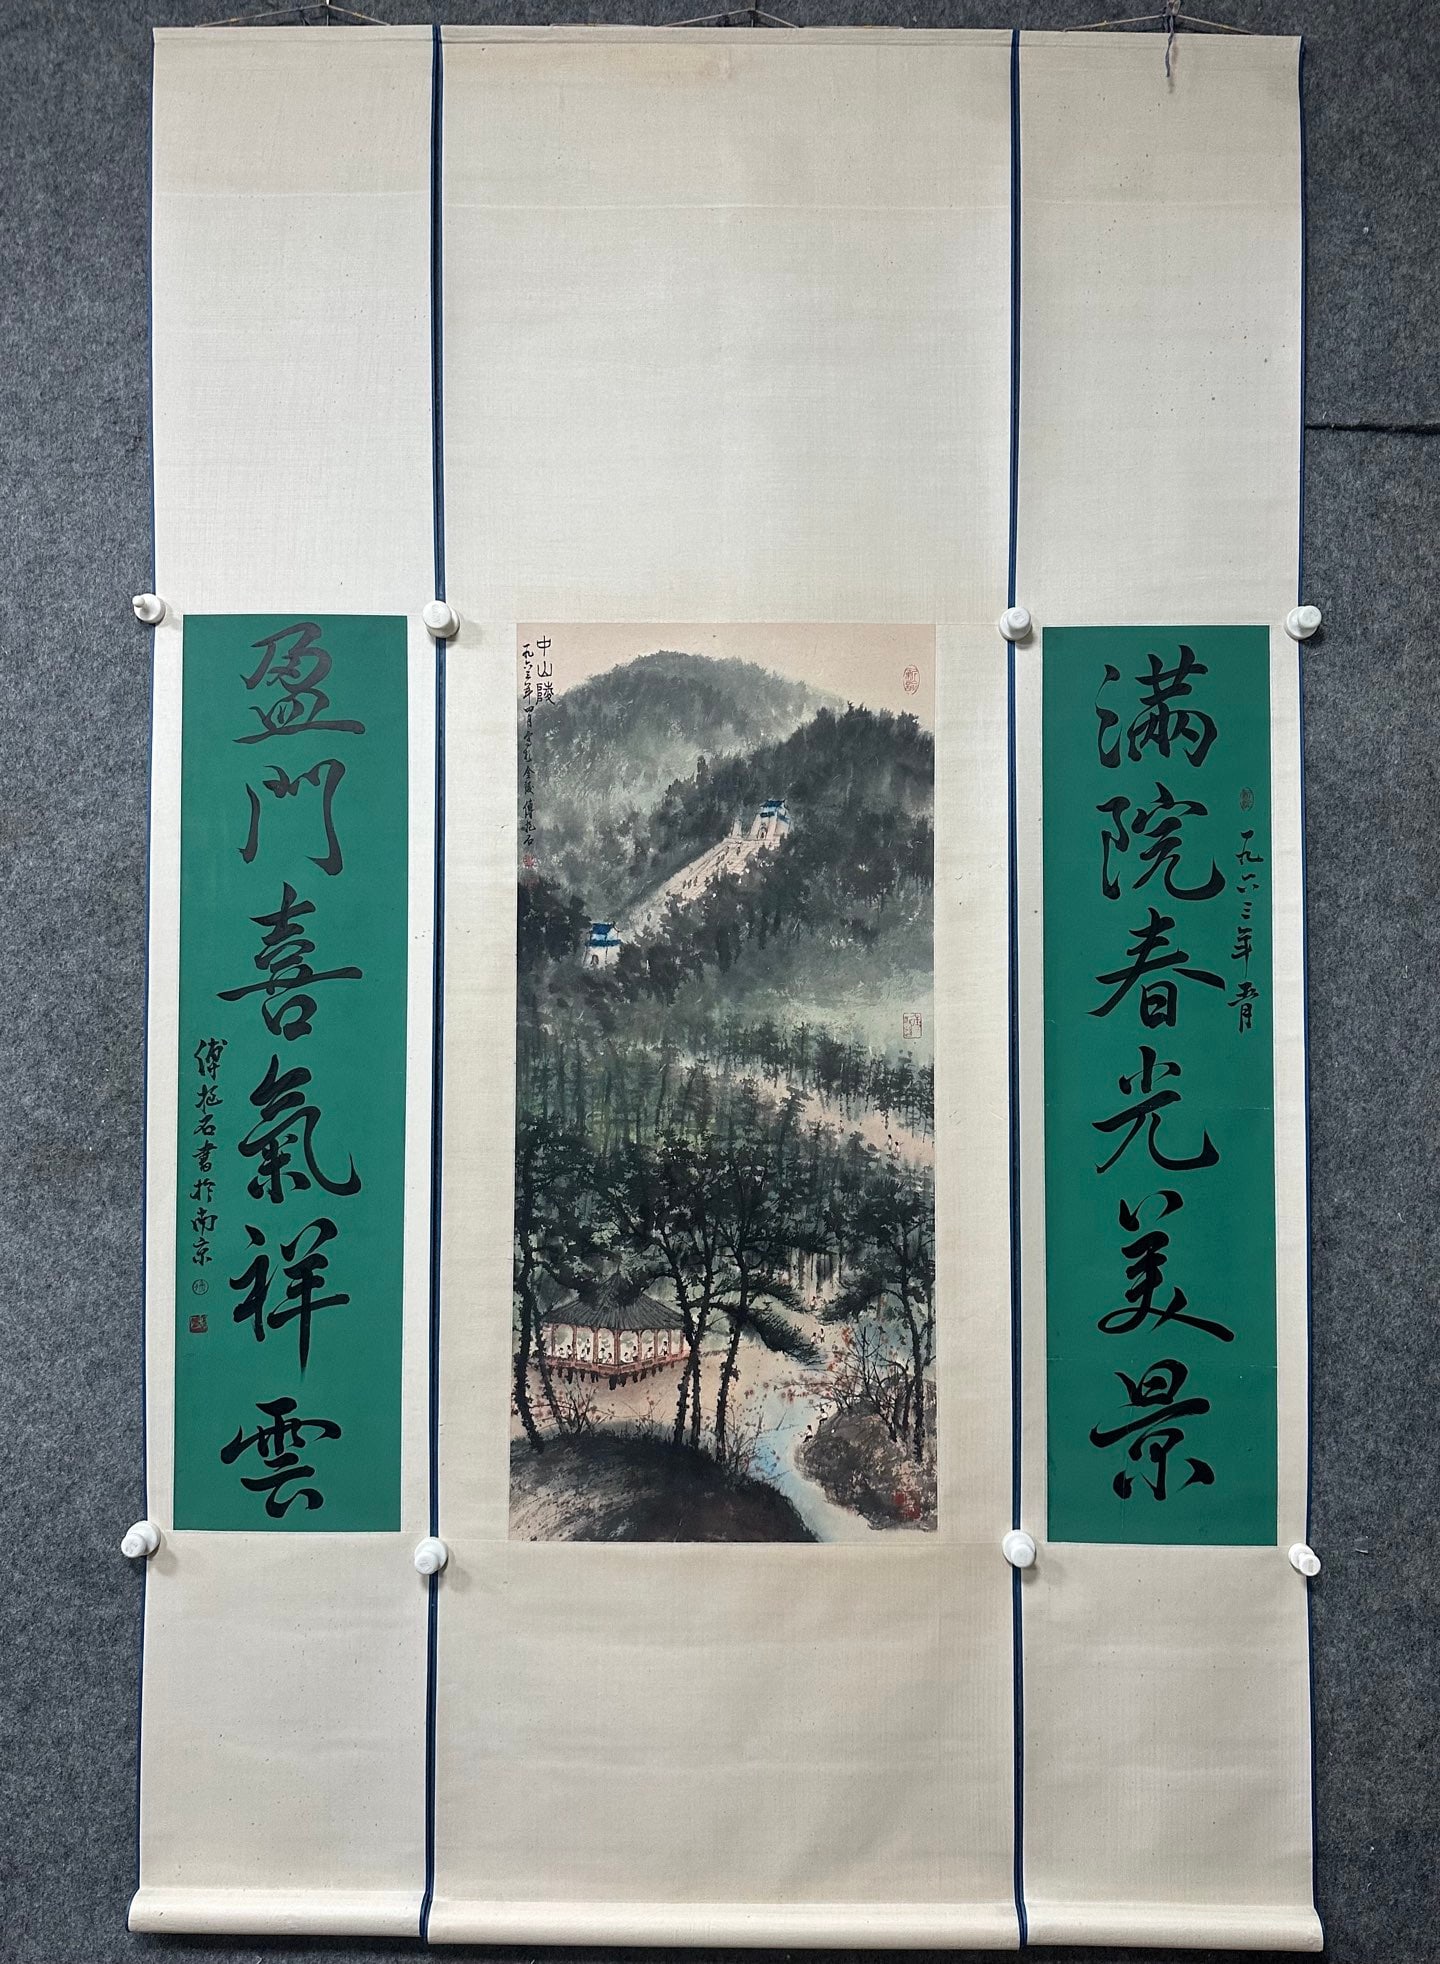 滿院春光美景
一九六三年五月
中山陵
一九六三年四月寫於金陵傅抱石
盈門喜氣祥雲
傅抱石書於南京